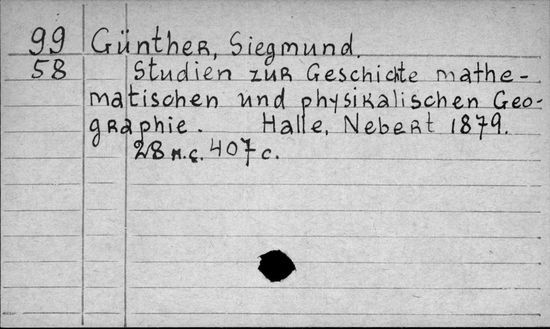 99 Günther, Siegmund.
58 Studien zur Geschichte mathe-
matischen und physikalischen Geo-
graphie. Halle, Nebert 1879.
28 н.с. 407 с.